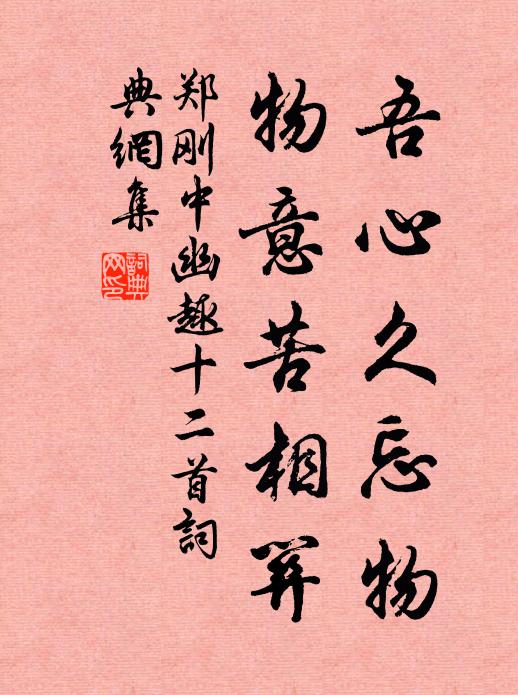 吾心久忘物
物意苦相
郑刚中幽趣十二首詞
典網集
詞典
网印